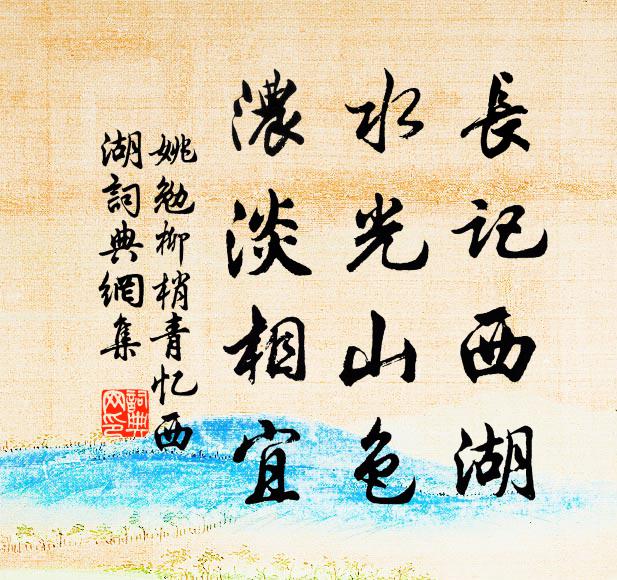 長記西湖
水光山色
濃淡相宜
姚勉柳梢青忆西
湖詞典網集
詞典网印